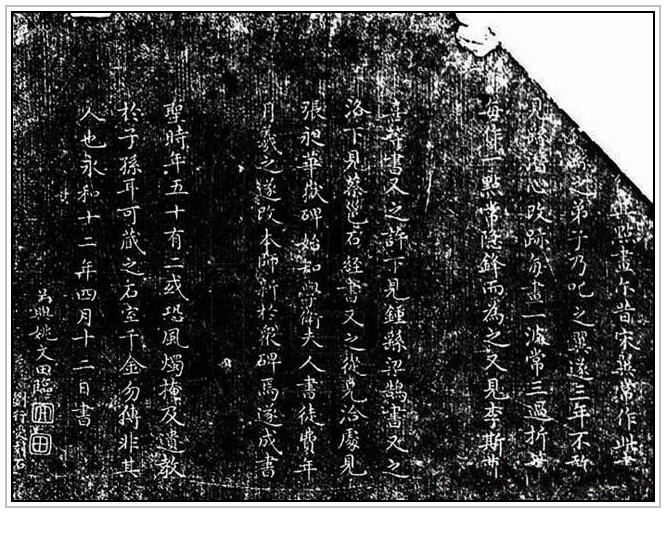 畫尔昔宋翼常作此
繇之弟子乃叱之翼遂三年不敢
見繇潛心改跡每畫一波常三過折筆
每作一點常隱鋒而為之又見李斯曹
喜等書又之許下見鍾繇梁鵠書又之
洛下見蔡邕石經書又之從兄洽處見
張昶華嶽碑始知學衛夫人書徒費年
月羲之遂改本師新於衆碑焉遂成書
聖時年五十有二或恐風燭掩及遺教
於子孫耳可藏之石室千金勿傳非其
人也永和十二年四月十二日書
吳興姚文田臨